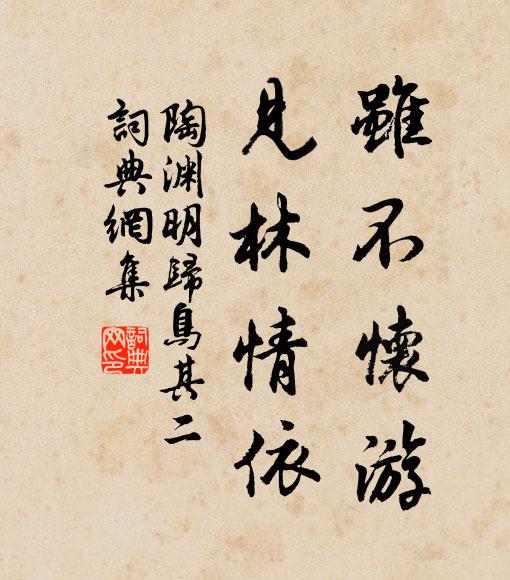 雖不懷游
見林情依
陶淵明歸鳥其二
詞典網集
詞典
网印